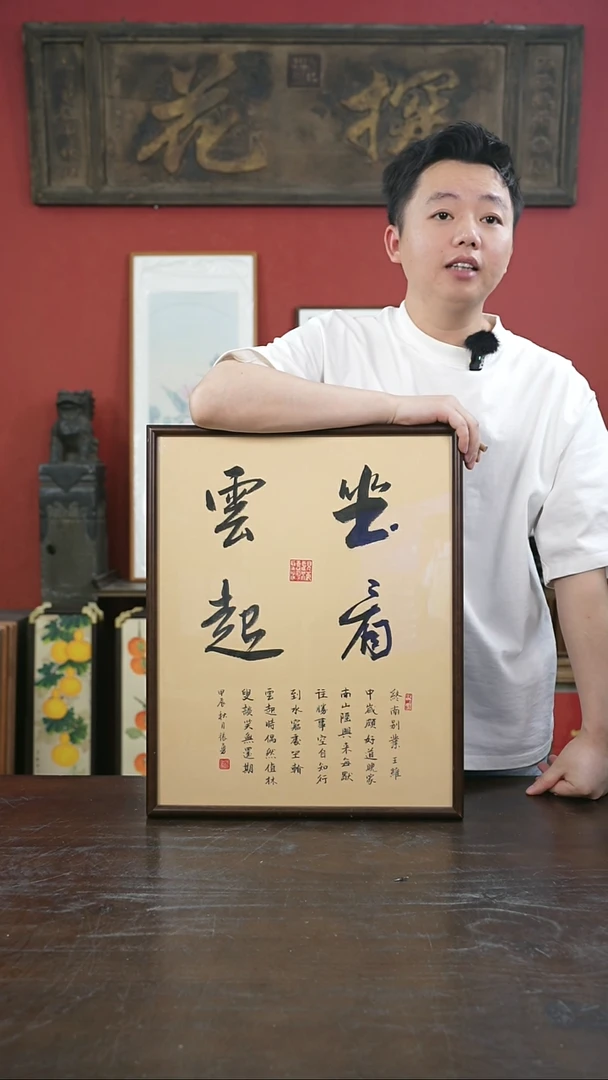 探花
坐看
雲起
終南別業 王維
中歲頗好道晚家
南山陲興來每獨
往勝事空自知行
到水窮處坐看
雲起時偶然值林
叟談笑無還期
甲辰秋月張